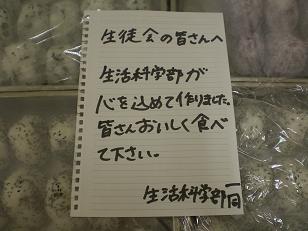 生徒会の皆さんへ
生活科学部が
心を込めて作りました。
皆さんおいしく食べ
て下さい。
生活科学部一同